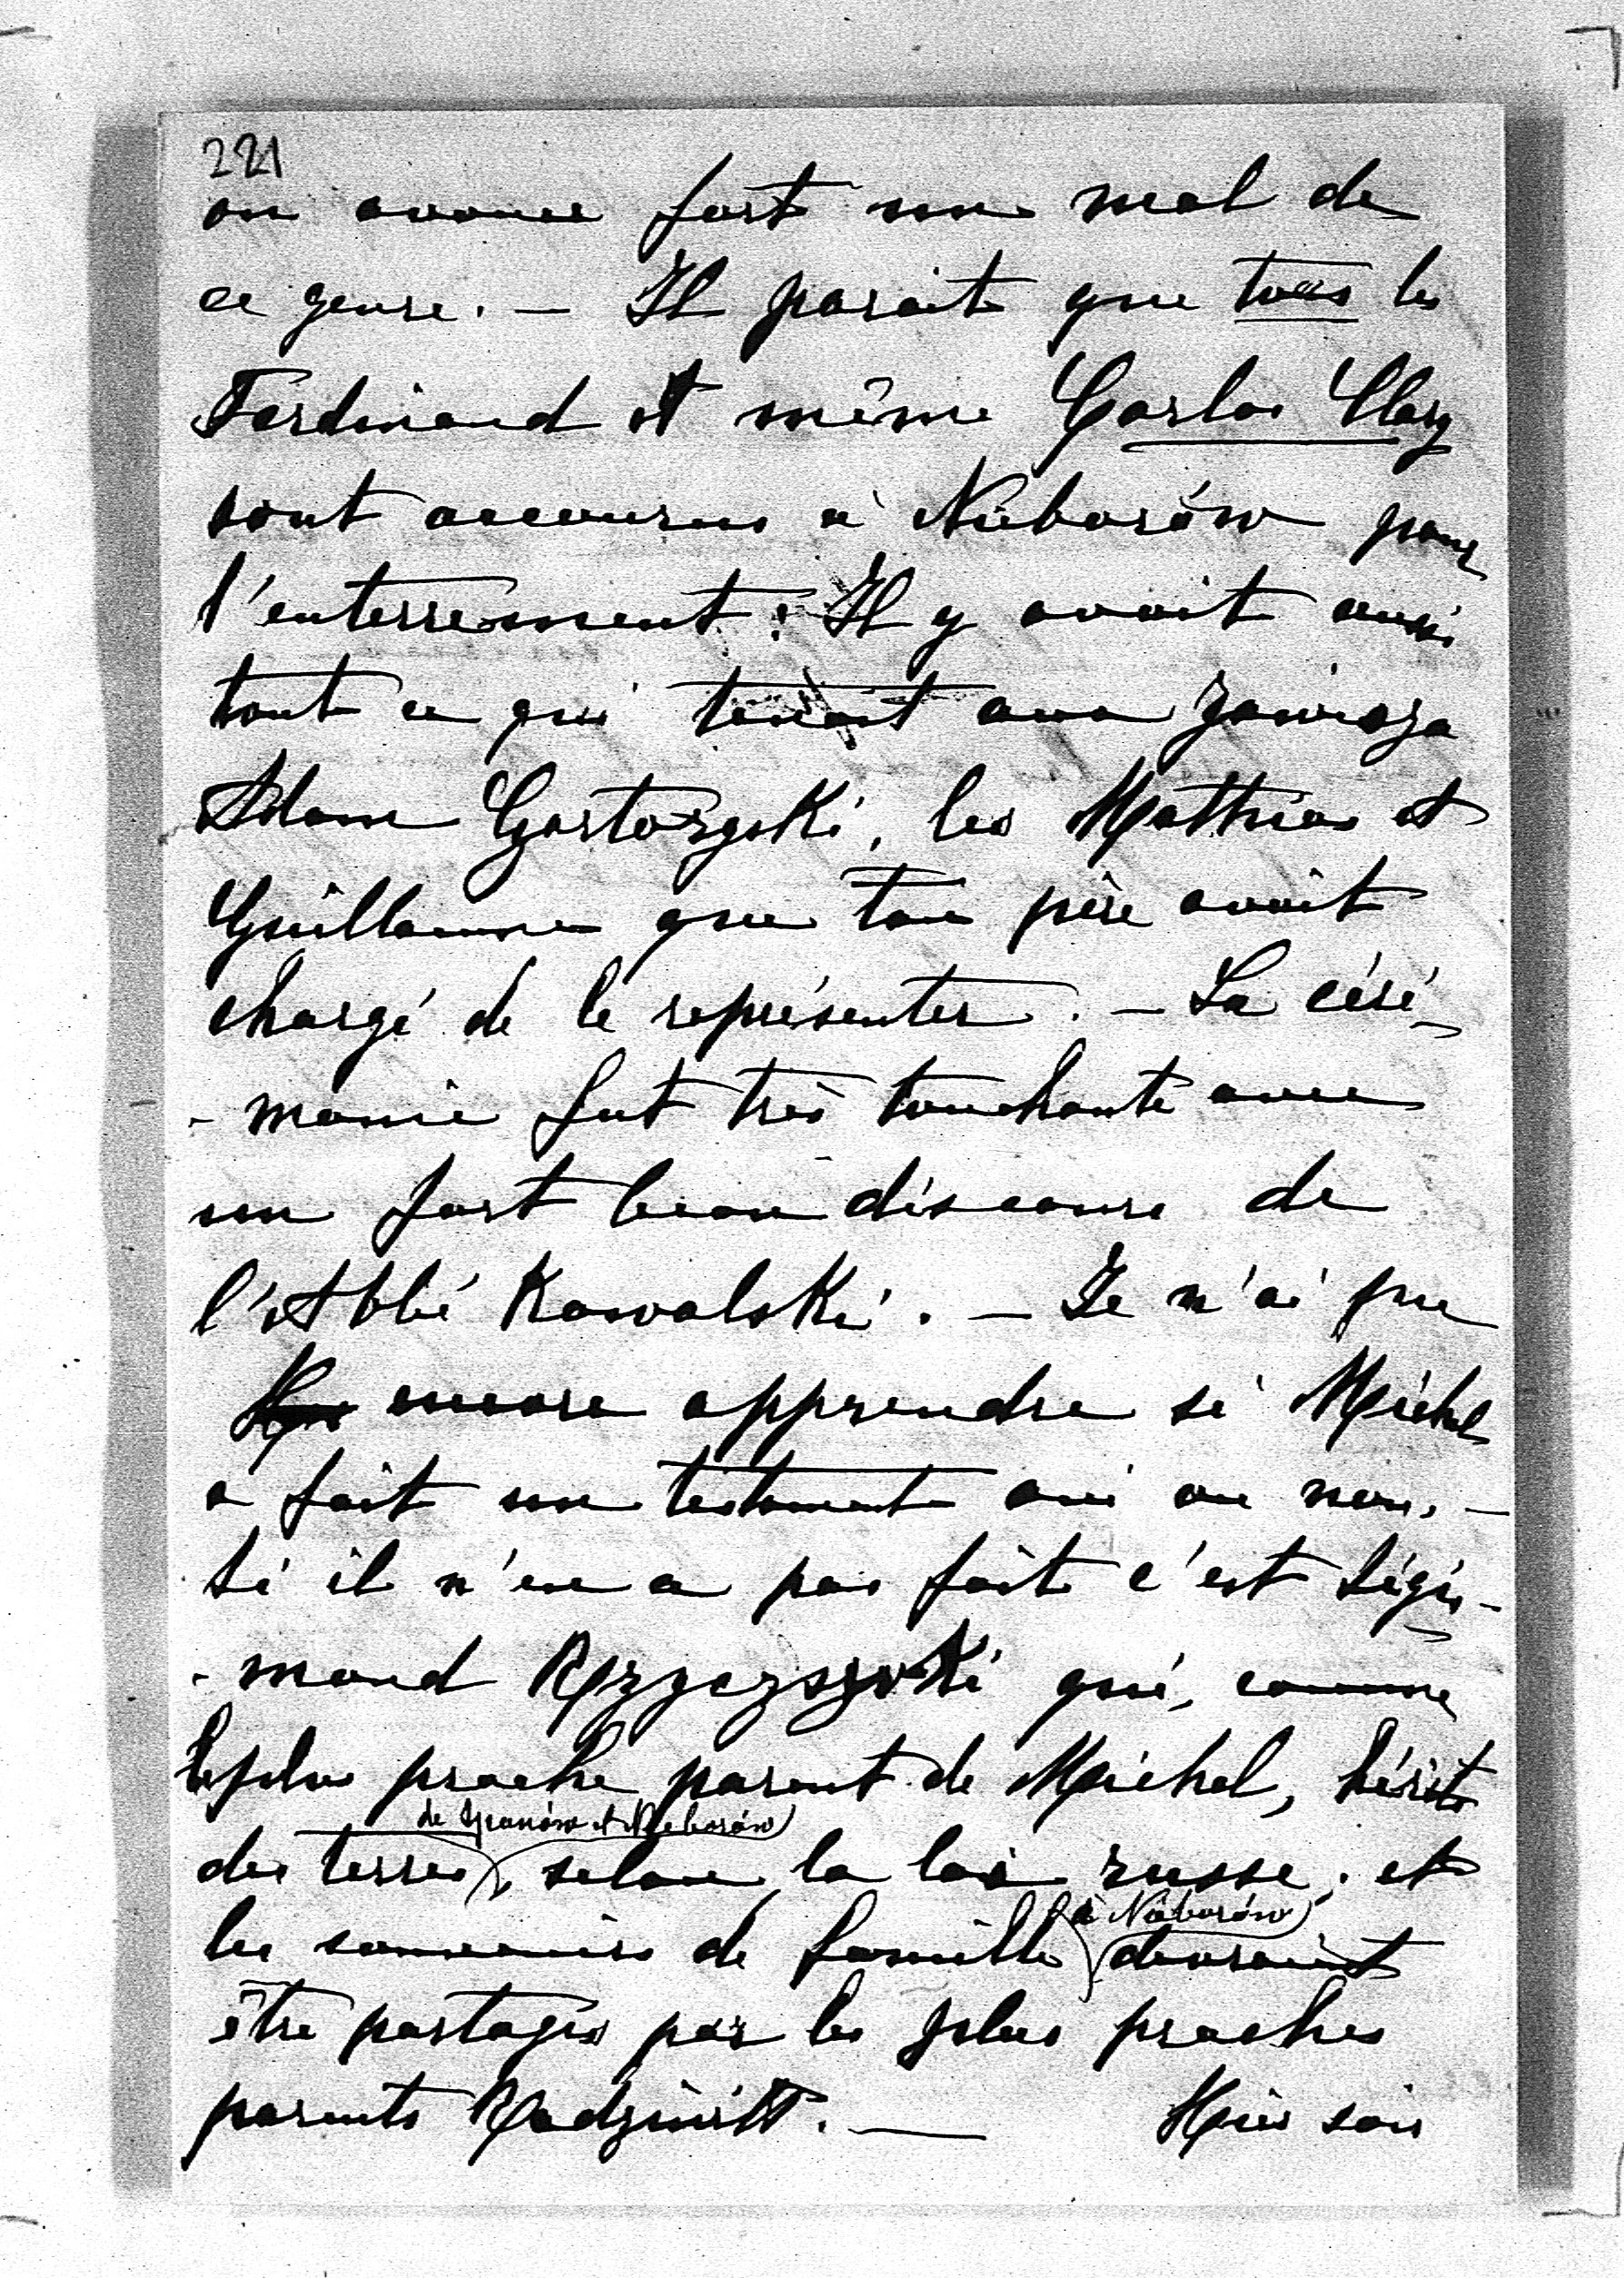 221
on avance fort un mal de
ce genre. — Il parait que tous les
Ferdinand et même Carlos Clary
sont accourus à Nieborów pour
l'enterrement. Il y avait aussi
tout ce qui tenait aux Zawisza
Adam Czartoryski, les Mathias et
Guillaume que ton père avait
chargé de le représenter. — La céré-
-monie fut très touchante avec
un fort beau discours de
l'Abbé Kowalski. — Je n'ai pu
encore apprendre si Michel
a fait un testament oui ou non. —
Si il n'en a pas fait c'est Sigis-
-mond qui, comme
le plus proche parent de Michel, hérite
de et Nieborów
des terres, selon la loi russe, et
à Nieborów
les souvenirs de famille devraient
être partagés par les plus proches
parents Radziwill. — Hier soir